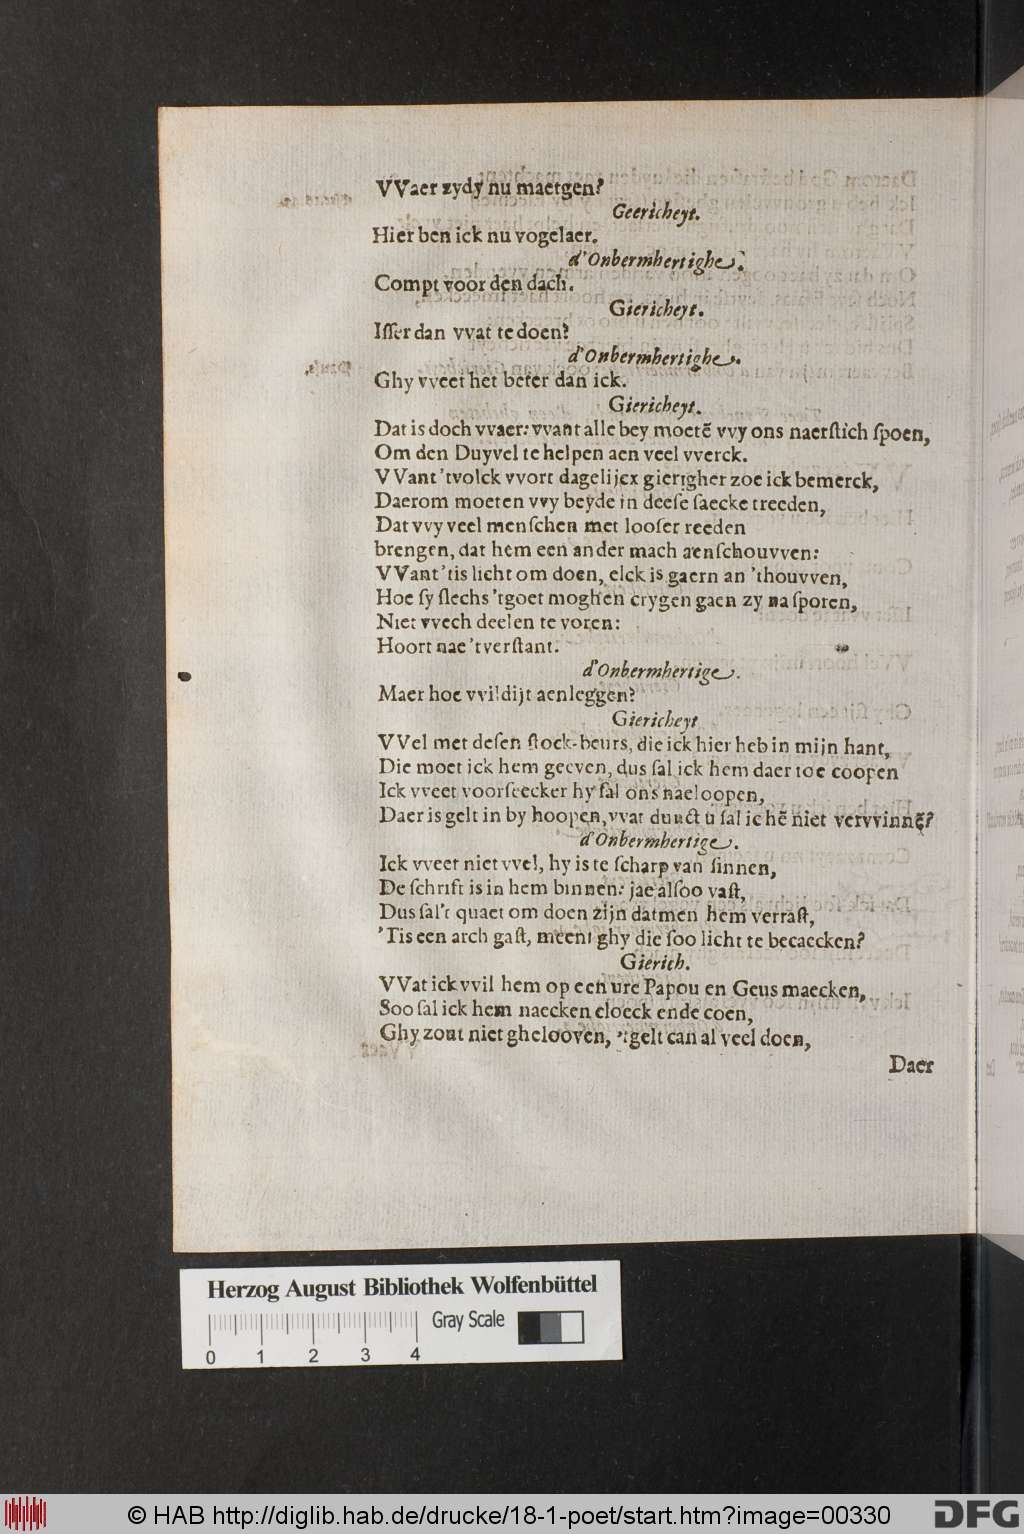 VVaer zydy nu maetgen?
Geericheyt.
Hier ben ick nu vogelaer.
d'Onbermhertighe.
Compt voor den dach.
Giericheyt.
Isser dan vvat te doen?
d'Onbermhertighe.
Ghy vveet het beter dan ick.
Giericheyt.
Dat is doch vvaer: vvant alle bey moetē vvy ons naerstich spoen,
Om den Duyvel te helpen aen veel vverck.
VVant 'tvolck vvort dagelijcx gierigher zoe ick bemerck,
Daerom moeten vvy beyde in deese saecke treeden,
Dat vvy veel menschen met looser reeden
brengen, dat hem een ander mach aenschouvven:
VVant 'tis licht om doen, elck is gaern an 'thouvven,
Hoe sy slechs 'tgoet moghen crygen gaen zy na sporen,
Niet vvech deelen te voren:
Hoort nae 't verstant.
d'Onbermhertige.
Maer hoe vvildijt aenleggen?
Giericheyt
VVel met desen stock-beurs, die ick hier heb in mijn hant,
Die moet ick hem geeven, dus sal ick hem daer toe coopen
Ick vveet voorseecker hy sal ons naeloopen,
Daer is gelt in by hoopen, vvat dunct u sal ic hē niet vervvinnē?
d'Onbermhertige.
Ick vveet niet vvel, hy is te scharp van sinnen,
De schrift is in hem binnen: jae alsoo vast,
Dus sal't quaet om doen zijn datmen hem verrast,
'Tis een arch gast, meent ghy die soo licht te becaecken?
Gierich.
VVat ick vvil hem op een ure Papou en Geus maecken,
Soo sal ick hem naecken cloeck ende coen,
Ghy zout niet ghelooven, 'tgelt can al veel doen,
Daer
Herzog August Bibliothek Wolfenbüttel
Gray Scale
0 1 2 3 4
© HAB http://diglib.hab.de/drucke/18-1-poet/start.htm?image=00330
DFG